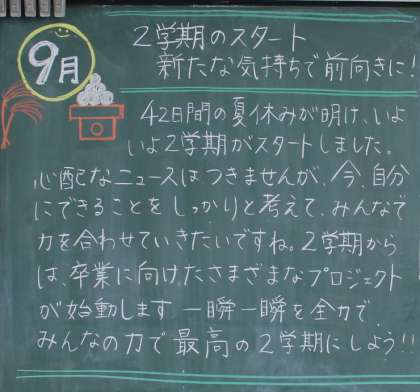 9月
2学期のスタート
新たな気持ちで前向きに!
42日間の夏休みが明け、いよ
いよ2学期がスタートしました。
心配なニュースはつきませんが、今、自分
にできることをしっかりと考えて、みんなで
力を合わせていきたいですね。2学期から
は、卒業に向けたさまざまなプロジェクト
が始動します 一瞬一瞬を全力で
みんなの力で最高の2学期にしよう!!